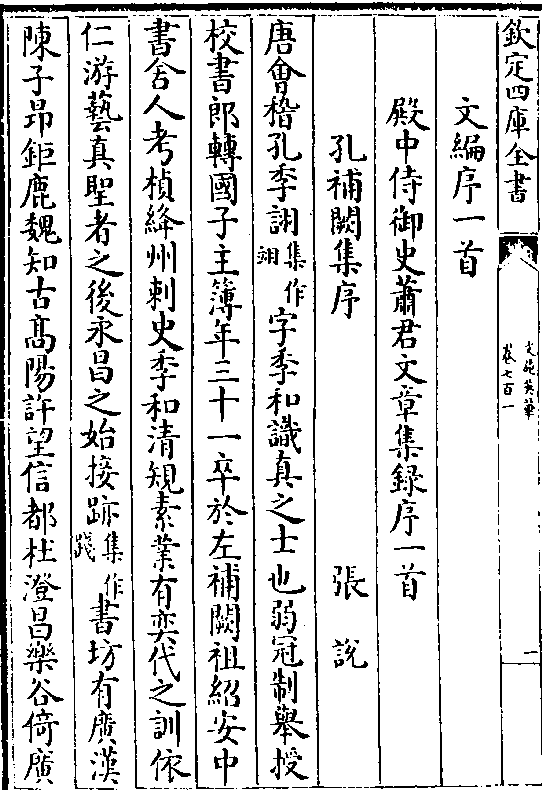 欽定四庫全書
文苑英華
卷七百一
一
文編序一首
殿中侍御史蕭君文章集録序一首
孔補闕集序　張説
唐會稽孔季詡集作翊字季和識真之士也弱冠制舉授
校書郎轉國子主簿年三十一卒於左補闕祖紹安中
書舍人考楨絳州刺史季和清規素業有奕代之訓依
仁游藝真聖者之後永昌之始接跡集作踐書坊有廣漢
陳子昂鉅鹿魏知古髙陽許望信都杜澄昌樂谷倚廣